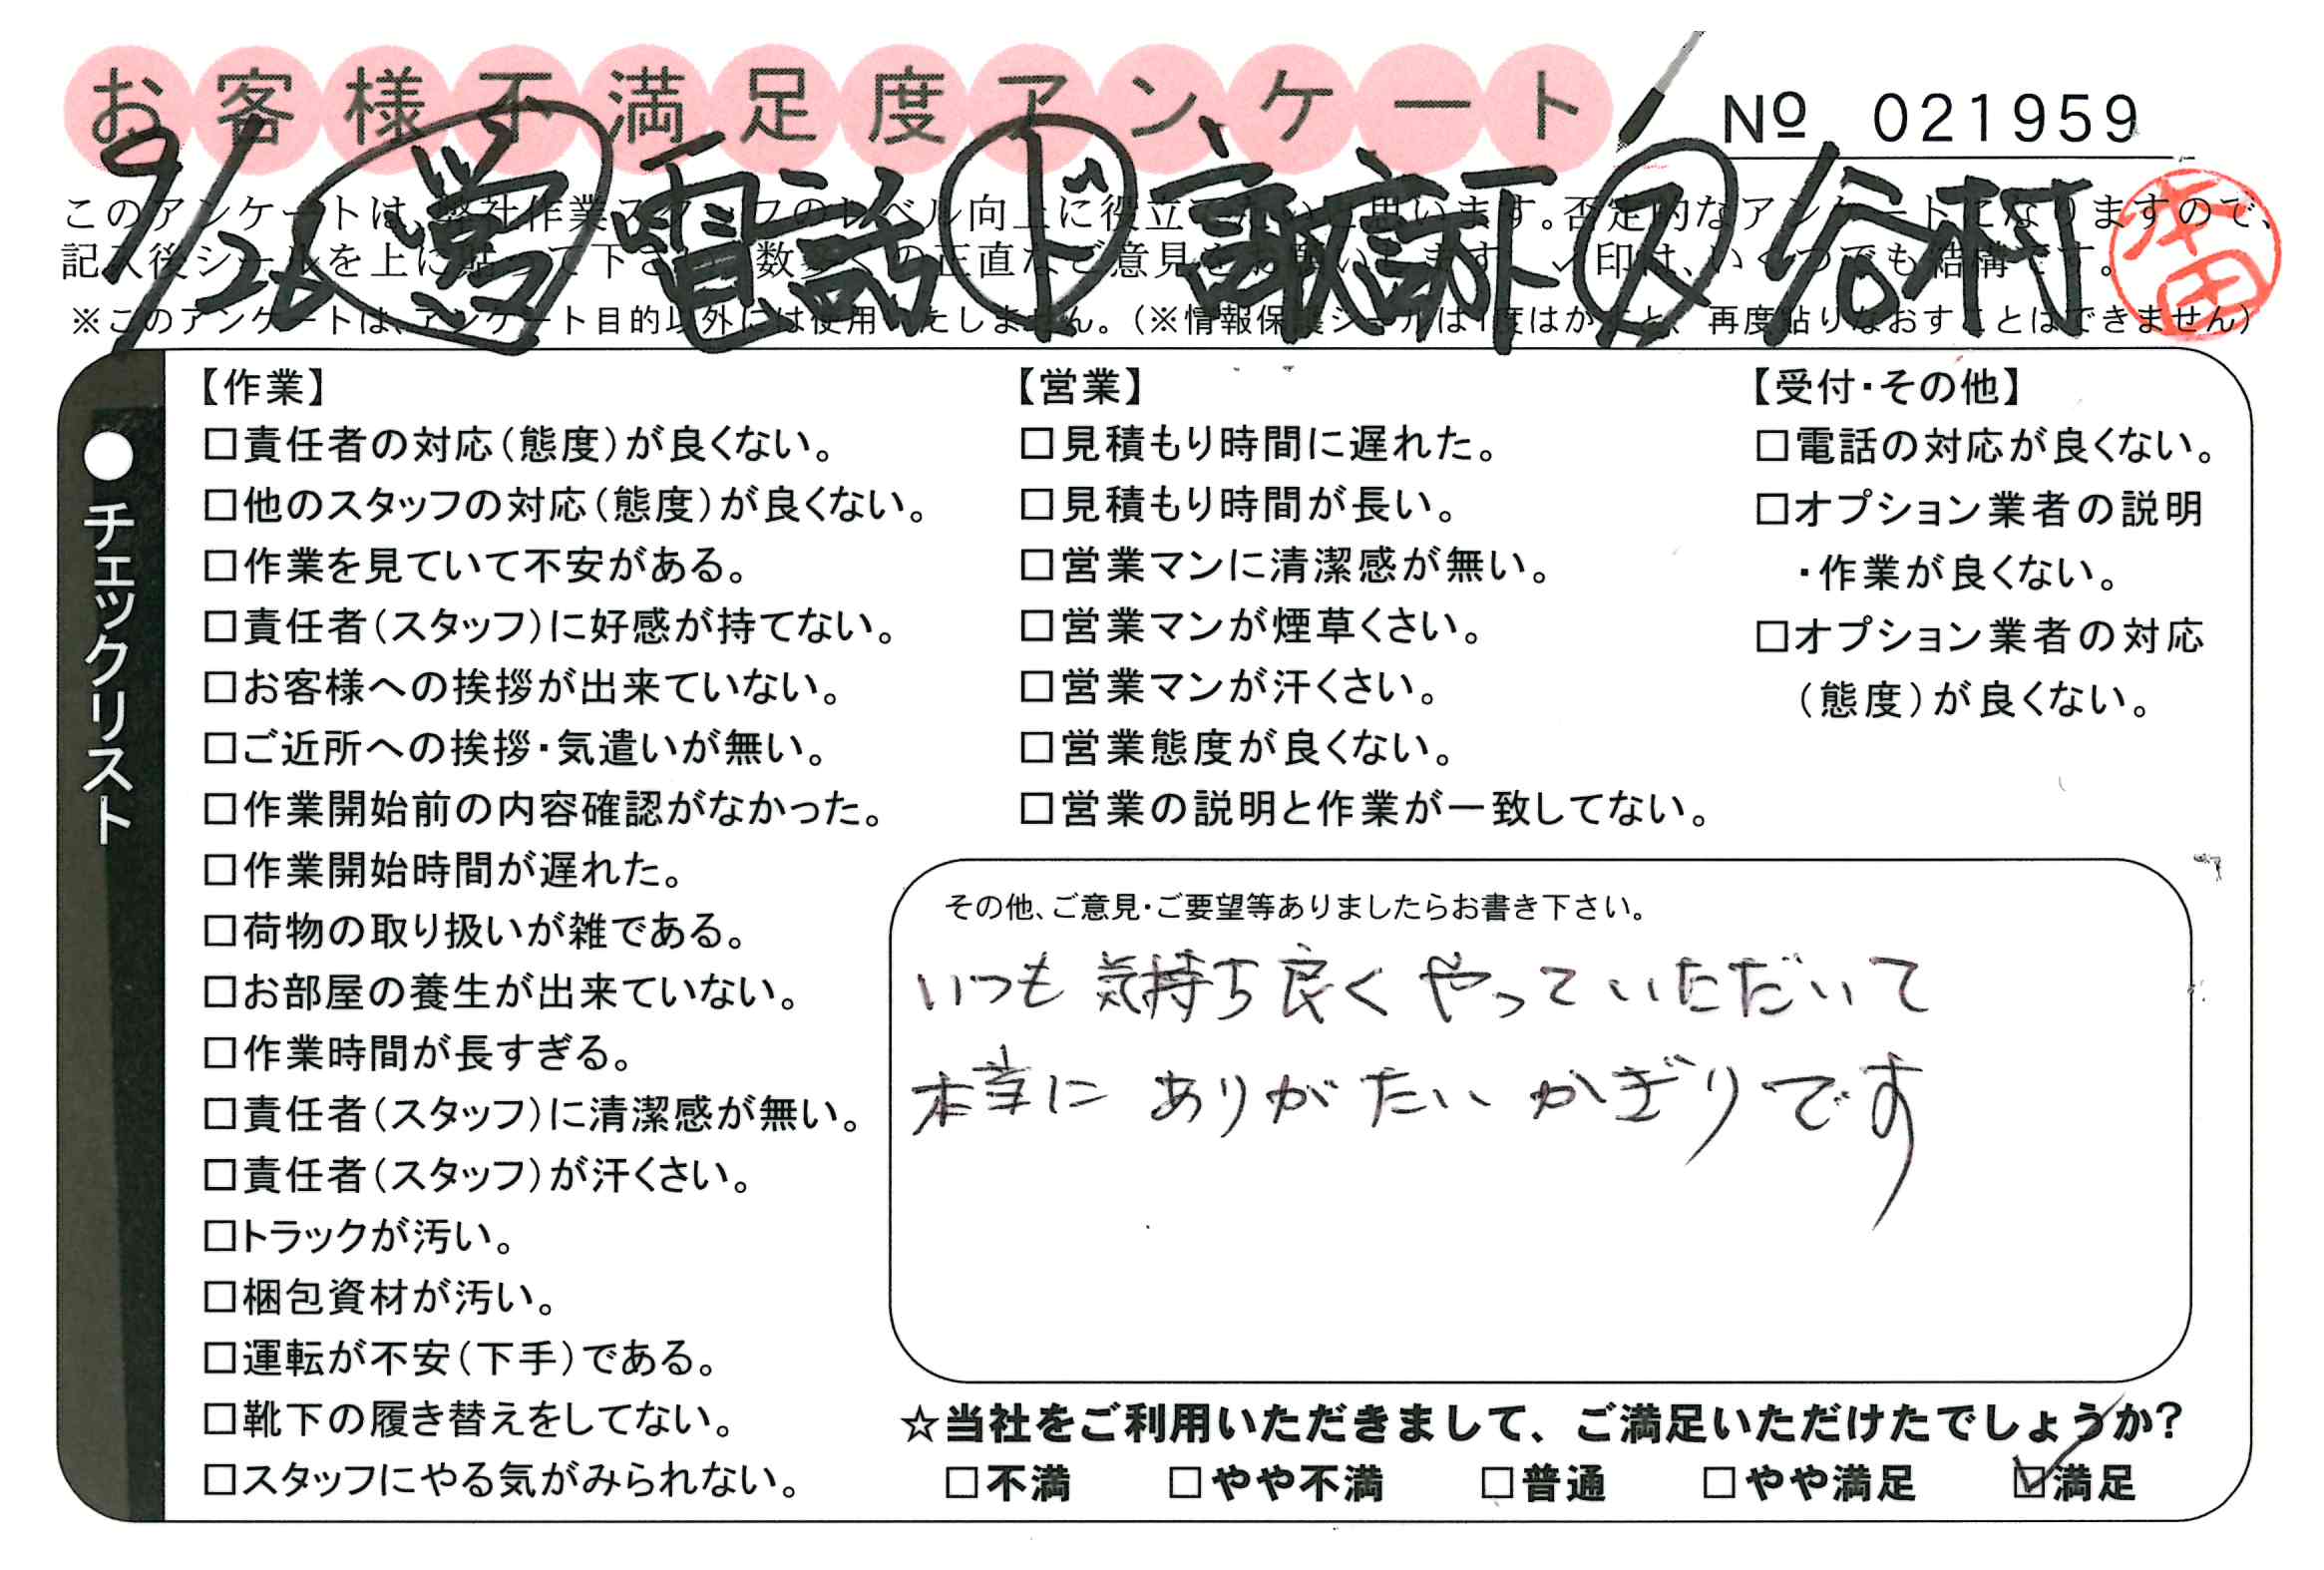 お客様不満足度アンケート
№ 021959
9/26 営 電話 ド 諏訪下 ス 谷村
本田
このアンケートは、弊社作業スタッフのレベル向上に役立てたいと思います。否定的なアンケートとなりますので、
記入後シールを上に貼って下さい。数多くの正直なご意見をお願いします。レ印は、いくつでも結構です。
※このアンケートは、アンケート目的以外には使用いたしません。（※情報保護シールは1度はがすと、再度貼りなおすことはできません）
●チェックリスト
【作業】
□責任者の対応（態度）が良くない。
□他のスタッフの対応（態度）が良くない。
□作業を見ていて不安がある。
□責任者（スタッフ）に好感が持てない。
□お客様への挨拶が出来ていない。
□ご近所への挨拶・気遣いが無い。
□作業開始前の内容確認がなかった。
□作業開始時間が遅れた。
□荷物の取り扱いが雑である。
□お部屋の養生が出来ていない。
□作業時間が長すぎる。
□責任者（スタッフ）に清潔感が無い。
□責任者（スタッフ）が汗くさい。
□トラックが汚い。
□梱包資材が汚い。
□運転が不安（下手）である。
□靴下の履き替えをしてない。
□スタッフにやる気がみられない。
【営業】
□見積もり時間に遅れた。
□見積もり時間が長い。
□営業マンに清潔感が無い。
□営業マンが煙草くさい。
□営業マンが汗くさい。
□営業態度が良くない。
□営業の説明と作業が一致してない。
【受付・その他】
□電話の対応が良くない。
□オプション業者の説明
・作業が良くない。
□オプション業者の対応
（態度）が良くない。
その他、ご意見・ご要望等ありましたらお書き下さい。
いつも気持ち良くやっていただいて
本当にありがたいかぎりです
☆当社をご利用いただきまして、ご満足いただけたでしょうか？
□不満 □やや不満 □普通 □やや満足 ☑満足